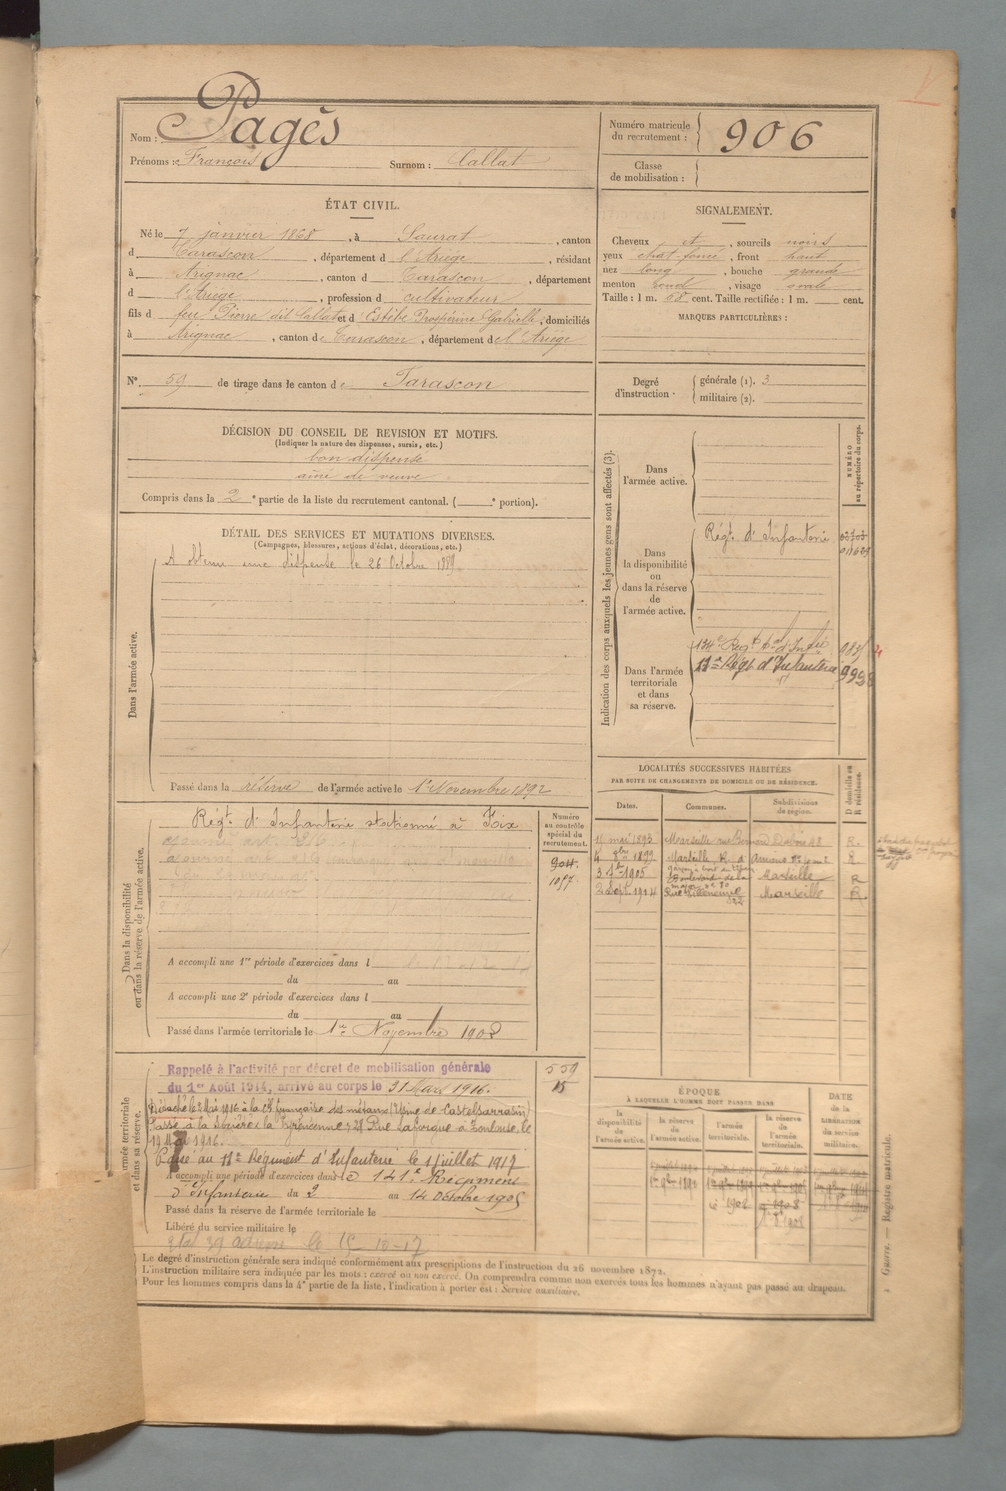 Nom : Pagès
Prénoms : François Surnom : Callat
Numéro matricule du recrutement : 906
Classe de mobilisation :
ÉTAT CIVIL.
Né le 7 janvier 1868, à Saurat, canton
d Tarascon, département d l'Ariège, résidant
à Arignac, canton d Tarascon, département
d l'Ariège, profession d cultivateur
fils d feu Pierre dit Callat et d Estèbe Prospérine Gabrielle, domiciliés
à Arignac, canton de Tarascon, département de l'Ariège
N° 59 de tirage dans le canton de Tarascon
SIGNALEMENT.
Cheveux et, sourcils noirs
yeux chat. foncé, front haut
nez long, bouche grande
menton rond, visage ovale
Taille : 1 m. 58 cent. Taille rectifiée : 1 m. cent.
MARQUES PARTICULIÈRES :
Degré d'instruction. générale (1). 3
militaire (2).
DÉCISION DU CONSEIL DE REVISION ET MOTIFS.
(Indiquer la nature des dispenses, sursis, etc.)
bon dispensé
aîné de veuve
Compris dans la 2e partie de la liste du recrutement cantonal. ( e portion).
DÉTAIL DES SERVICES ET MUTATIONS DIVERSES.
(Campagnes, blessures, actions d'éclat, décorations, etc.)
Dans l'armée active.
A obtenu une dispense le 26 Octobre 1889
Passé dans la réserve de l'armée active le 1er Novembre 1892
Indication des corps auxquels les jeunes gens sont affectés (3).
NUMÉRO au répertoire du corps.
Dans l'armée active.
Dans la disponibilité ou dans la réserve de l'armée active.
Régt. d'Infanterie
Dans l'armée territoriale et dans sa réserve.
134e Régt tal d'Infie
17e Régt d'Infanterie
LOCALITÉS SUCCESSIVES HABITÉES
PAR SUITE DE CHANGEMENTS DE DOMICILE OU DE RÉSIDENCE.
Dates. Communes. Subdivisions de région. D domicile ou R résidence.
11 mai 1893 Marseille rue R.
4 8bre 1899 Marseille, R. d' R
3 1905 Marseille R
2 Sept. 1924 Rue Villeneuve Marseille R
Dans la disponibilité ou dans la réserve de l'armée active.
Régt. d'Infanterie stationné à Foix
Numéro au contrôle spécial du recrutement.
904.
1057
A accompli une 1re période d'exercices dans l
du au
A accompli une 2e période d'exercices dans l
du au
Passé dans l'armée territoriale le 1er Novembre 1902
armée territoriale et dans sa réserve.
Rappelé à l'activité par décret de mobilisation générale
du 1er Août 1914, arrivé au corps le 31 Mars 1916.
559
15
Détaché le 2 Mai 1916 à la Cie française des métaux (Usine de Castelsarrasin)
Passé à la Pyrénéenne, 28 Rue Laforgue à Toulouse, le
19 Mai 1916.
Passé au 17e Régiment d'Infanterie le 1 juillet 1917
A accompli une période d'exercices dans le 141e Régiment
d'Infanterie du 2 au 14 Octobre 1905
Passé dans la réserve de l'armée territoriale le
Libéré du service militaire le
ÉPOQUE
À LAQUELLE L'HOMME DOIT PASSER DANS
la disponibilité de l'armée active. la réserve de l'armée active. l'armée territoriale. la réserve de l'armée territoriale. DATE de la libération du service militaire.
Le degré d'instruction générale sera indiqué conformément aux prescriptions de l'instruction du 26 novembre 1872.
L'instruction militaire sera indiquée par les mots : exercé ou non exercé. On comprendra comme non exercés tous les hommes n'ayant pas passé au drapeau.
Pour les hommes compris dans la 4e partie de la liste, l'indication à porter est : Service auxiliaire.
Guerre. — Registre matricule.